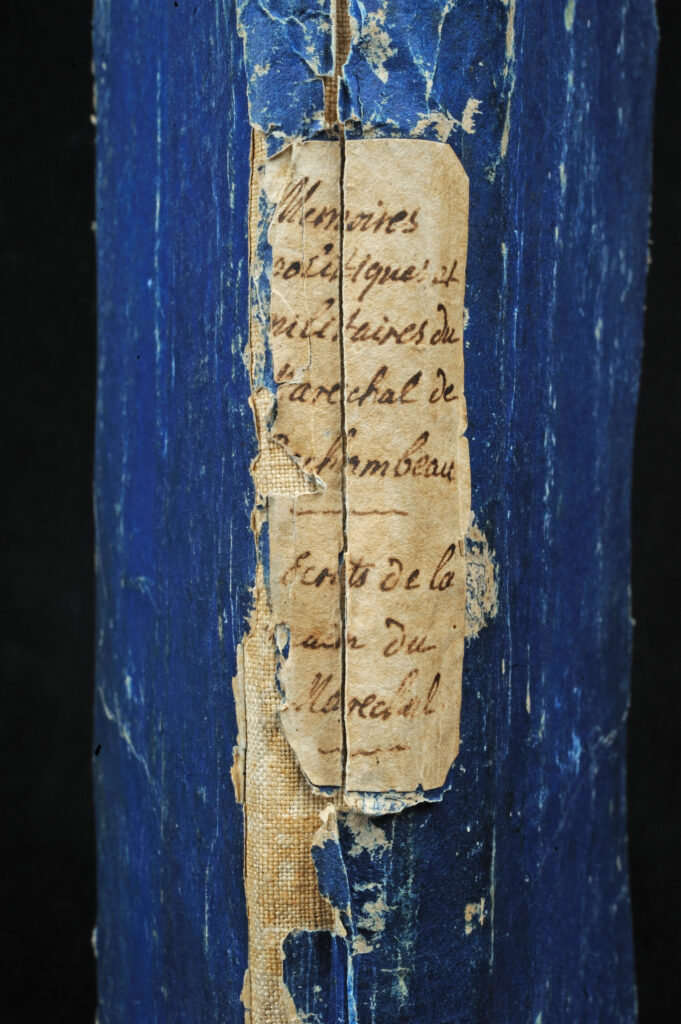 Memoires
politiques et
militaires du
Marechal de
Rochambeau
Ecrits de la
main du
Marechal